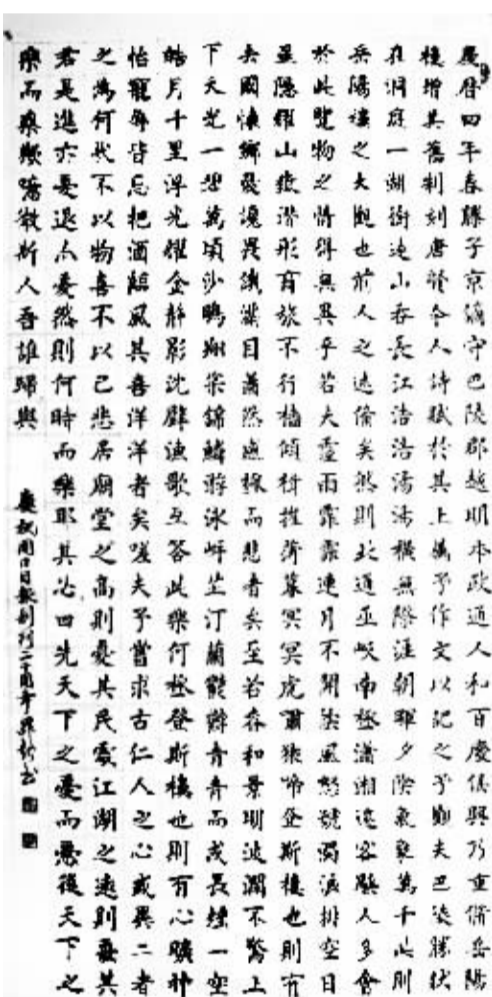 慶曆四年春滕子京謫守巴陵郡越明年政通人和百廢俱興乃重脩岳陽
樓增其舊制刻唐賢今人詩賦於其上屬予作文以記之予觀夫巴陵勝狀
在洞庭一湖銜遠山吞長江浩浩湯湯橫無際涯朝暉夕陰氣象萬千此則
岳陽樓之大觀也前人之述備矣然則北通巫峽南極瀟湘遷客騷人多會
於此覽物之情得無異乎若夫霪雨霏霏連月不開陰風怒號濁浪排空日
星隱耀山嶽潛形商旅不行檣傾楫摧薄暮冥冥虎嘯猿啼登斯樓也則有
去國懷鄉憂讒畏譏滿目蕭然感極而悲者矣至若春和景明波瀾不驚上
下天光一碧萬頃沙鷗翔集錦鱗游泳岸芷汀蘭鬱鬱青青而或長煙一空
皓月千里浮光耀金靜影沈璧漁歌互答此樂何極登斯樓也則有心曠神
怡寵辱皆忘把酒臨風其喜洋洋者矣嗟夫予嘗求古仁人之心或異二者
之為何哉不以物喜不以己悲居廟堂之高則憂其民處江湖之遠則憂其
君是進亦憂退亦憂然則何時而樂耶其必曰先天下之憂而憂後天下之
樂而樂歟噫微斯人吾誰歸與
慶祝日報創刊二十周年書